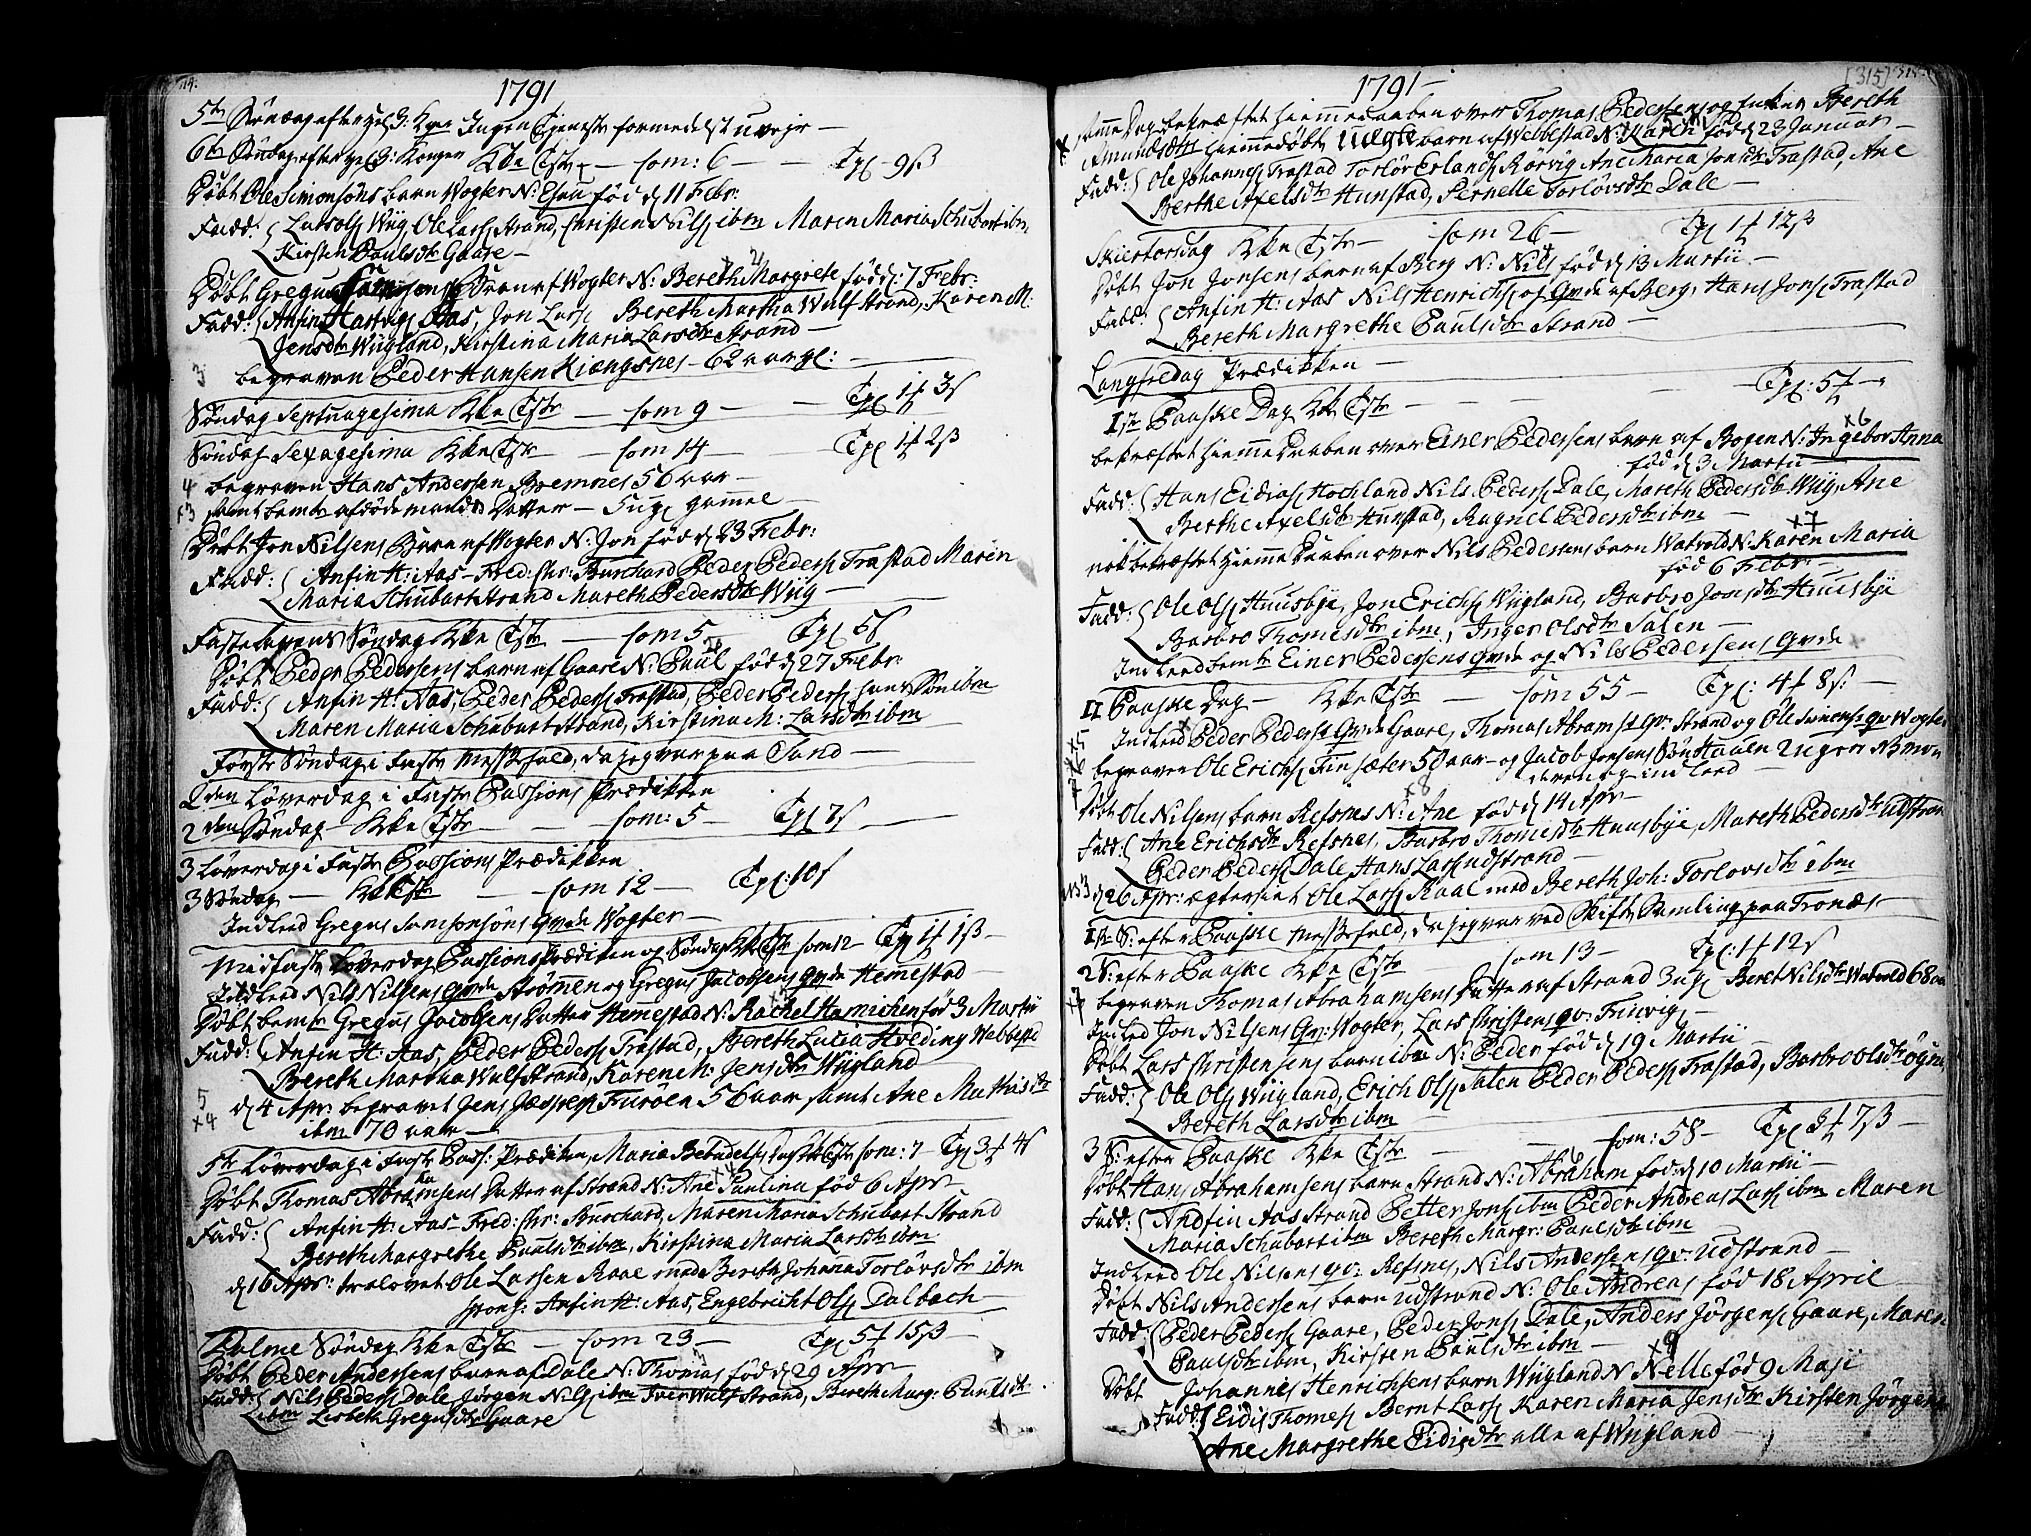 14.
1791
5te Søndag efter hel: 3: Kger Ingen Tjeneste formedelst uvejr —
6te Søndag efter hel: 3: Konger Kke Tste — Com: 6 — — Tpl 9 s
Døbt Ole Simonsøns barn Vogter N: Esau fød d 11 Febr:
Fadd: Lars Ols Wiig, Ole Lars Strand, Christen Nils ibm Maren Maria Schubart ibm,
Kirsten Paulsdtr Gaare —
Døbt Gregus barn af Wogter N: Bereth Margrete fød d: 7 Febr:
Fadd: Anfin Hartvig Aas, Jon Lars Bereth Martha Wulf Strand, Karen M:
Jensdtr Wiigland, Kirstina Maria Larsdtr Strand —
3 begraven Peder Hansen Kiængsnes — 62 aar gl: —
Søndag Septuagesima Kke Tste — Com 9 — — Tpl 1 3 s
Søndag Sexagesima Kke Tste — Com 14 — Tpl 1 2 s
4 begraven Hans Andersen Bremnes 56 aar —
+3 samt bemte afdøde mands Datter — 5 ug gammel —
Døbt Jon Nilsens Barn af Wogter N: Jon fød d 23 Febr:
Fadd: Anfin H: Aas — Fred: Chr: Burchard Peder Peders Trastad Maren
Maria Schubart Strand Mareth Pedersdtr Wiig —
Fastelavens Søndag Kke Tste — Com 5 Tpl 6 s
Døbt Peder Pedersens barn af Gaare N: Paul fød d 27 Febr:
Fadd: Anfin H: Aas, Peder Peders Trastad, Peder Peders hans Søn ibm
Maren Maria Schubart Strand, Kirstina M: Larsdtr ibm
Første Søndag i Faste Messefald, da jeg var paa Sand —
2den Løverdag i Faste Passions Prædikken
2den Søndag — Kke Tste — — Com: 5 — Tpl 7 s
3 Løverdag i Faste Passions Prædikken
3 Søndag — Kke Tste — Com 12 — Tpl: 10 s
Indleed Gregus Samsonsøns Qvde Vogter —
Midfaste Løverdag Passions Prædiken og Søndag Kke Tste Com 12 Tpl 1 1 s —
Indleed Nils Nilsens Qvde Strømen og Gregus Jacobsens Qvde Hemestad —
Døbt bemte Gregus Jacobsens Datter Hemestad N: Rachel Hamichen fød 3 Martii
Fadd: Anfin H: Aas, Peder Peders Trastad, Bereth Lucia Hveding Webbestad
Bereth Martha Wulf Strand, Karen M: Jensdtr Wiigland
5 d 4 Apr: begravet Jens Jespers Furøen 56 aar samt Ane Mathisdtr
x4 ibm 70 aar —
5te Løverdag i Faste Pass: Prædiken, Mariæ Bebudelse Kke Tste Com: 7 — Tpl 3 4 s
Døbt Thomas Abrahamsens Datter af Strand N: Ane Paulina fød 6 Apr:
Fadd: Anfin H: Aas — Fred: Chr: Burchard, Maren Maria Schubart Strand
Bereth Margrethe Paulsdtr ibm, Kirstina Maria Larsdtr ibm
d 16 Apr: trolovet Ole Larsen Raae med Bereth Johanna Torlovsdtr ibm
spons: Anfin H: Aas, Engebricht Ols Dalbach —
Palme Søndag Kke Tste — Com 23 — Tpl 5 15 s —
Døbt Peder Andersens barn af Dale N: Thomas fød d 29 Apr:
Fadd: Nils Peders Dale Jørgen Nils ibm Iver Wulf Strand, Bereth Marg: Paulsdtr
ibm Lisbeth Gregusdtr Gaare
1791 —
[315]
Samme Dag bekræftet hiemmedaaben over Thomas Pedersens og Bereth
Amundsdtr hiemmedøbt uægte barn af Webbestad N: Karen fød d 23 Januar —
Fadd: Ole Johannes Trastad Torlør Erlands Rørvig Ane Maria Jonsdtr Trastad, Ane
Berthe Axelsdtr Hunstad, Pernelle Torløvsdtr Dale —
Skiertorsdag Kke Tste — Com 26 — Tpl 1 12 s
Døbt Jon Jonsens barn af Berg N: Nils fød d 13 Martii —
Fadd: Anfin H: Aas Nils Henrichs og Qvde af Berg, Hans Jons Trastad
Bereth Margrethe Paulsdtr Strand —
Langfredag Prædikken —
1ste Paaske Dag Kke Tste — — — — Tpl: 5 —
bekræftet Hiemme Daaben over Einer Pedersens barn af Bogen N: Ingebor Anna
x6
fød d 3 Martii —
Fadd: Hans Eidias Hochland Nils Peders Dale, Mareth Pedersdtr Wiig, Ane
Berthe Axelsdtr Hunstad, Ragnel Pedersdtr ibm —
x7
nok bekræftet Hiemme Daaben over Nils Pedersens barn Watvold N: Karen Maria
fød 6 Febr: —
Fadd: Ole Ols Huusbye, Jon Erichs Wiigland, Barbro Jonsdtr Huusbye
Barbro Thomesdtr ibm, Inger Olsdtr Salen —
Indleed bemte Einer Pedersens Qvde og Nils Pedersens Qvde
II Paaske Dag — Kke Tste — Com 55 — Tpl: 4 8 s: —
Indleed Peder Peders Qvde Gaare, Thomas Abrams Qv: Strand og Ole Simens Qv Wogter
begraven Ole Erichs Finsæter 50 aar — og Jacob Jensens Søn Hauen 2 uger
x8
Døbt Ole Nilsens barn Refsnes N: Ane fød d 14 Apr: —
Fadd: Ane Erichsdtr Refsnes, Barbro Thomesdtr Huusbye, Mareth Pedersdtr Udstran
Peder Peders Dale Hans Lars Udstrand —
No 3 d 26 Apr: ægteviet Ole Lars Raae med Bereth Joh: Torlovsdtr ibm
1ste S: efter Paaske Messefald, da jeg var ved Skifte Samling paa Tronæs —
2 S: efter Paaske Kke Tste Com 13 — Tpl: 1 12 s
begraven Thomas Abrahamsens Datter af Strand 3 ug Beret Nilsdtr Watvold 68 aar
Indleed Jon Nilsens Qv: Wogter, Lars Christens Qv: Finvig —
Døbt Lars Christensens barn ibm N: Peder fød d 19 Martii —
Fadd: Ole Ols Wiigland, Erich Ols Salen Peder Peders Trastad, Barbro Olsdtr
Bereth Larsdtr ibm
3 S: efter Paaske Kke Tste — — Com: 58 — Tpl 3 7 s —
Døbt Hans Abrahamsens barn Strand N: Abraham fød d 10 Martii —
Fadd: Andfin Aas Strand Petter Jons ibm Peder Andreas Lars ibm Maren
Maria Schubart ibm Bereth Margr: Paulsdtr ibm
Indleed Ole Nilsens Qv: Refsnes, Nils Andersens Qv: Udstrand —
Døbt Nils Andersens barn Udstrand N: Ole Andreas fød 18 April
Fadd: Peder Peders Gaare, Peder Jons Dale, Anders Jørgens Gaare, Maren
Paulsdtr ibm, Kirsten Paulsdtr ibm —
x9
Døbt Johannes Henrichsens barn Wiigland N: Nelle fød 9 Maji
Fadd: Eidis Thomes Bernt Lars Karen Maria Jensdtr Kirsten Jørgens
Ane Margrethe Eidisdtr alle af Wiigland —